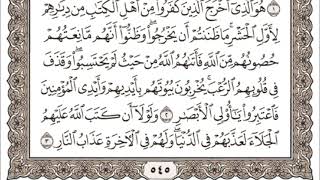 هُوَ ٱلَّذِىٓ أَخْرَجَ ٱلَّذِينَ كَفَرُوا۟ مِنْ أَهْلِ ٱلْكِتَٰبِ مِن دِيَٰرِهِمْ
لِأَوَّلِ ٱلْحَشْرِ ۚ مَا ظَنَنتُمْ أَن يَخْرُجُوا۟ ۖ وَظَنُّوٓا۟ أَنَّهُم مَّانِعَتُهُمْ
حُصُونُهُم مِّنَ ٱللَّهِ فَأَتَىٰهُمُ ٱللَّهُ مِنْ حَيْثُ لَمْ يَحْتَسِبُوا۟ ۖ وَقَذَفَ
فِى قُلُوبِهِمُ ٱلرُّعْبَ ۚ يُخْرِبُونَ بُيُوتَهُم بِأَيْدِيهِمْ وَأَيْدِى ٱلْمُؤْمِنِينَ
فَٱعْتَبِرُوا۟ يَٰٓأُو۟لِى ٱلْأَبْصَٰرِ ٢ وَلَوْلَآ أَن كَتَبَ ٱللَّهُ عَلَيْهِمُ
ٱلْجَلَآءَ لَعَذَّبَهُمْ فِى ٱلدُّنْيَا ۖ وَلَهُمْ فِى ٱلْءَاخِرَةِ عَذَابُ ٱلنَّارِ ٣
٥٤٥